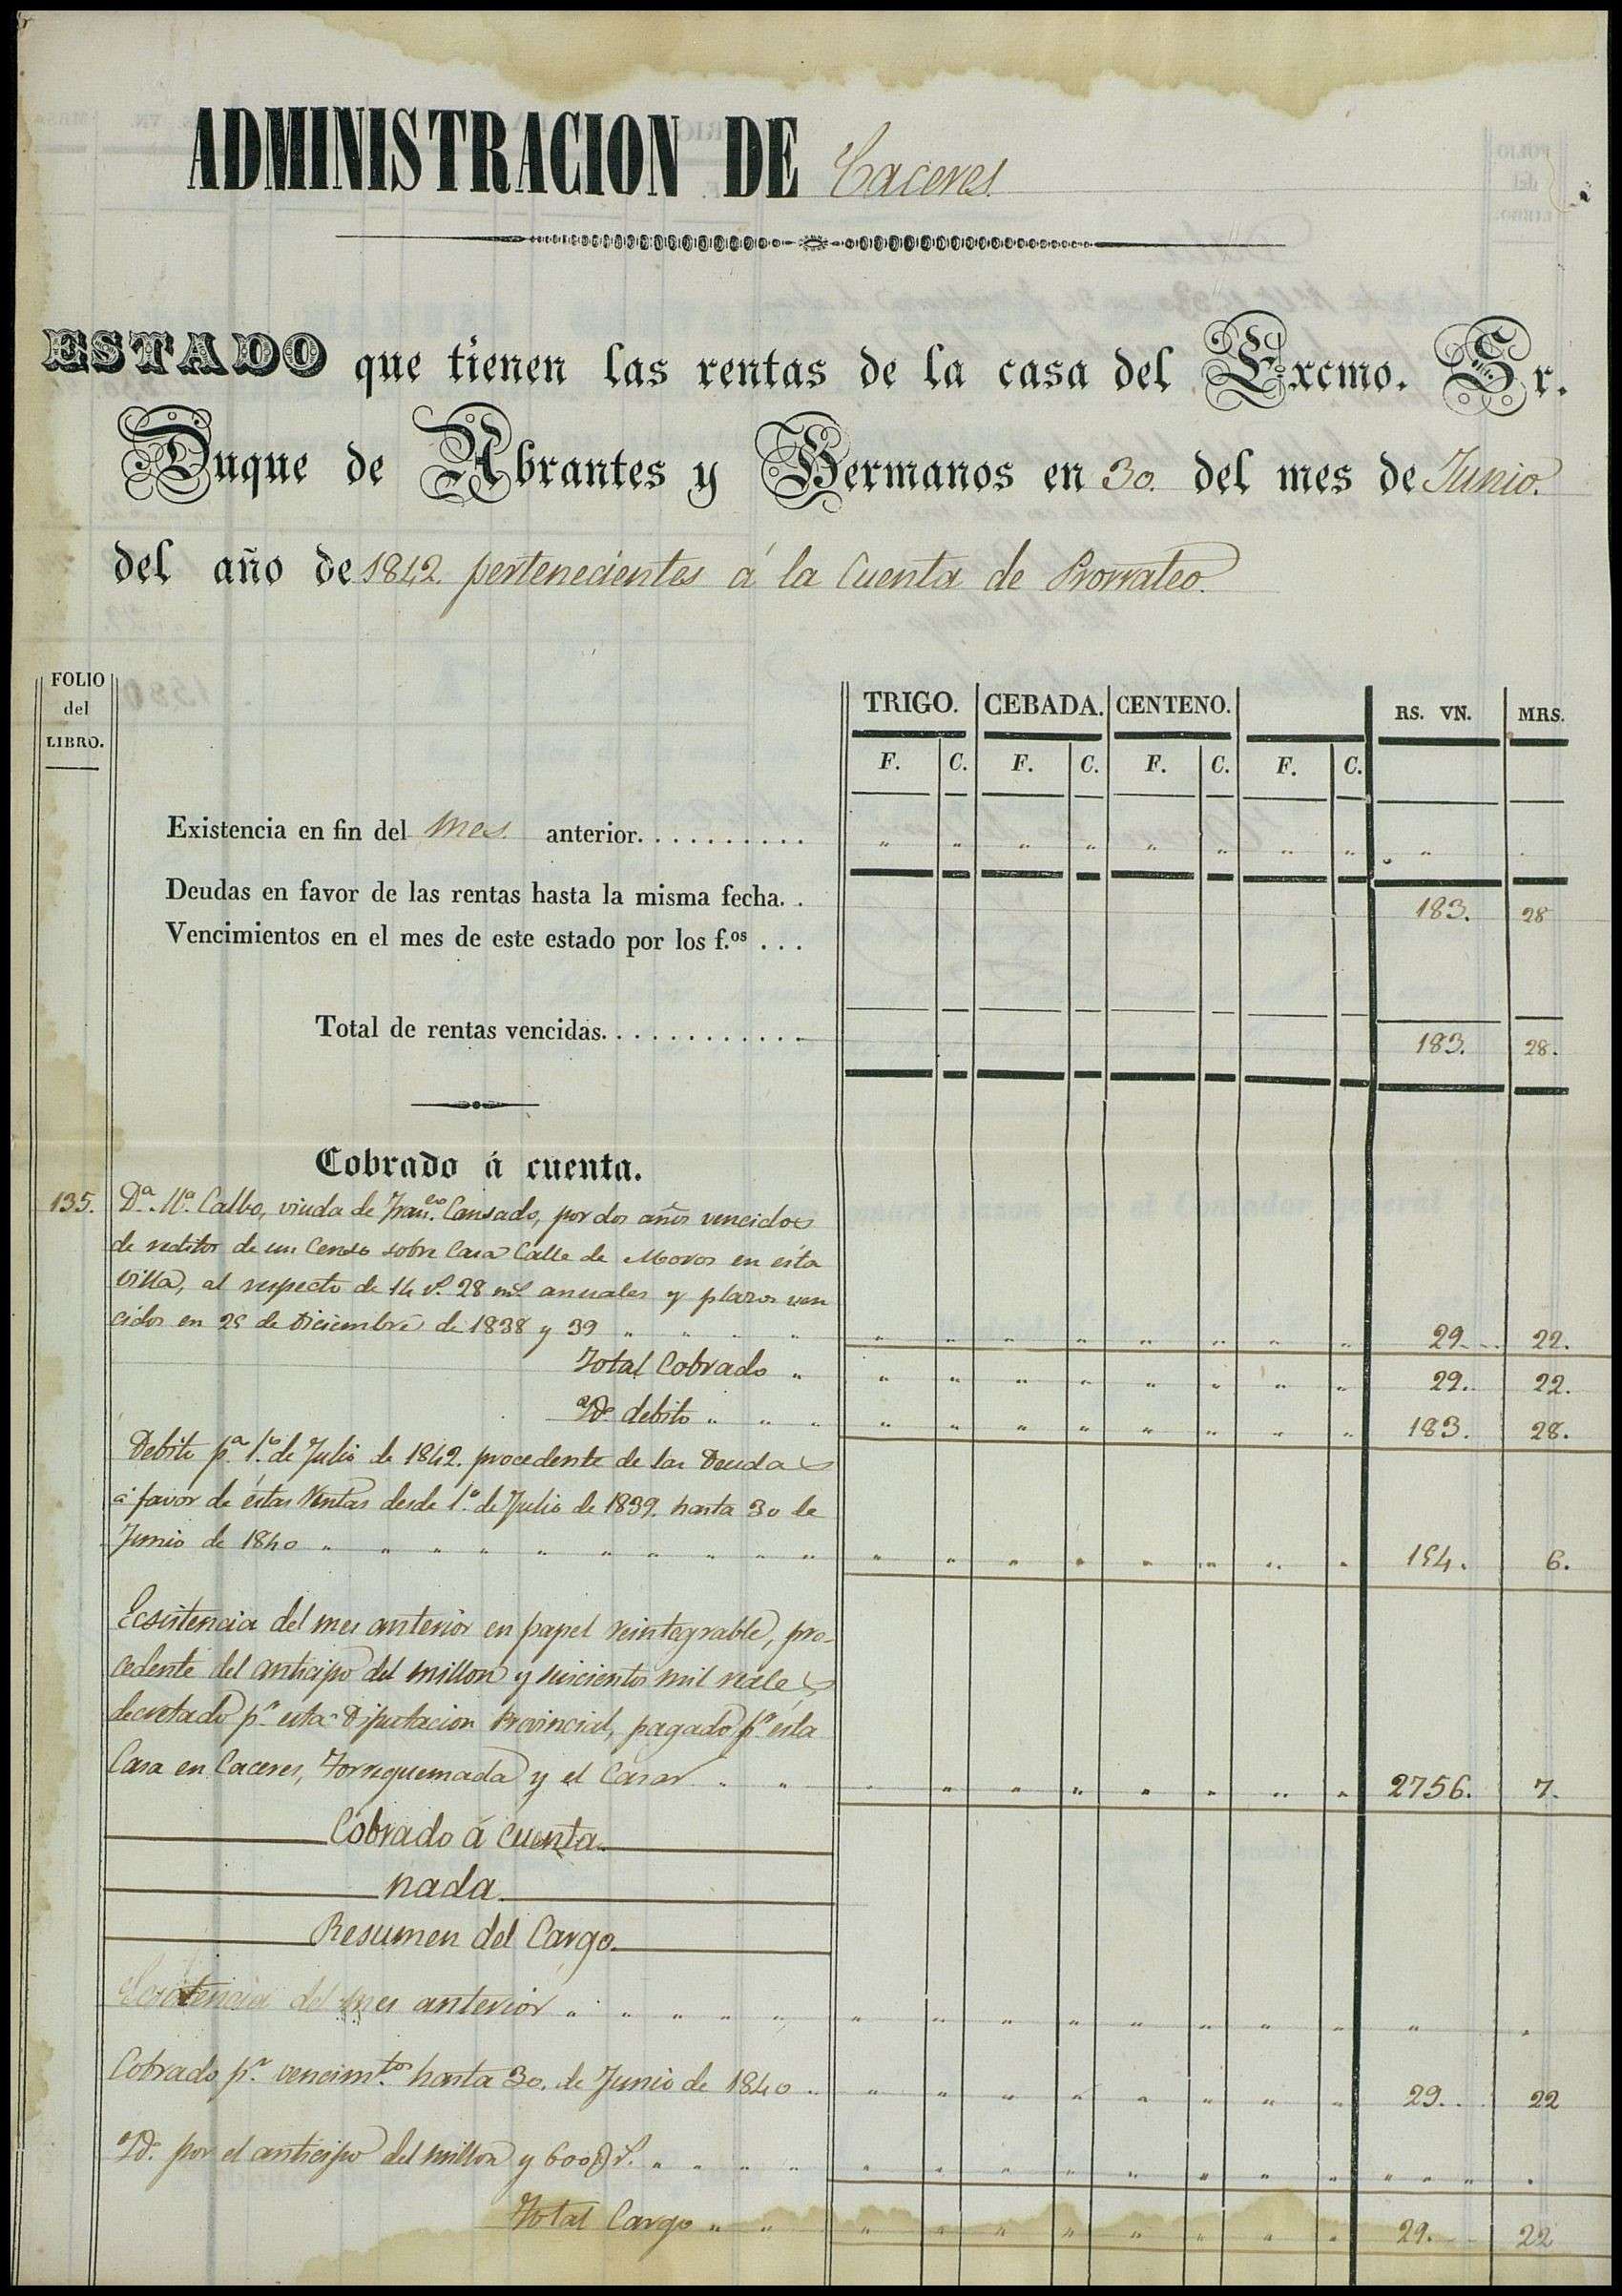 ADMINISTRACION DE Caceres
ESTADO que tienen las rentas de la casa del Excmo. Sr.
Duque de Abrantes y Hermanos en 30. del mes de Junio.
del año de 1842. pertenecientes á la Cuenta de Prorrateo.
FOLIO
del
LIBRO.
TRIGO. CEBADA. CENTENO. RS. VN. MRS.
F. C. F. C. F. C. F. C.
Existencia en fin del mes. anterior. . . . . . . . . . " " " " " " " " "
Deudas en favor de las rentas hasta la misma fecha. . 183. 28
Vencimientos en el mes de este estado por los f.os . . .
Total de rentas vencidas. . . . . . . . . . . . 183. 28.
Cobrado á cuenta.
135. Dª. Mª. Calbo, viuda de Fran.co Cansado, por dos años vencidos
de reditos de un Censo sobre Casa Calle de Moros en ésta
Villa, al respecto de 14 r.s 28 m.s anuales y plazos ven
cidos en 25 de Diciembre de 1838 y 39 " " " " " " " " " " " " 29. 22.
Total Cobrado " " " " " " " " " 29. 22.
Yd. debito " " " " " " " " " " " 183. 28.
Debito p.a 1.º de Julio de 1842. procedente de las Deudas
á favor de éstas Rentas desde 1.º de Julio de 1839. hasta 30 de
Junio de 1840 " " " " " " " " " " " " " " " " " " " 154. 6.
Ecsistencia del mes anterior en papel reintegrable, pro-
cedente del anticipo del millon y seiscientos mil reales
decretado p.r esta Diputacion Provincial, pagado p.r ésta
Casa en Caceres, Torrequemada y el Casar " " " " " " " " " " 2756. 7.
Cobrado á Cuenta.
nada.
Resumen del Cargo.
Ecsistencia del mes anterior " " " " " " " " " " " " " "
Cobrado p.r vencim.tos hasta 30. de Junio de 1840 " " " " " " " " " 29. 22
Yd. por el anticipo del millon y 600 r.s " " " " " " " " " " " " " " "
Total Cargo " " " " " " " " " " 29. 22